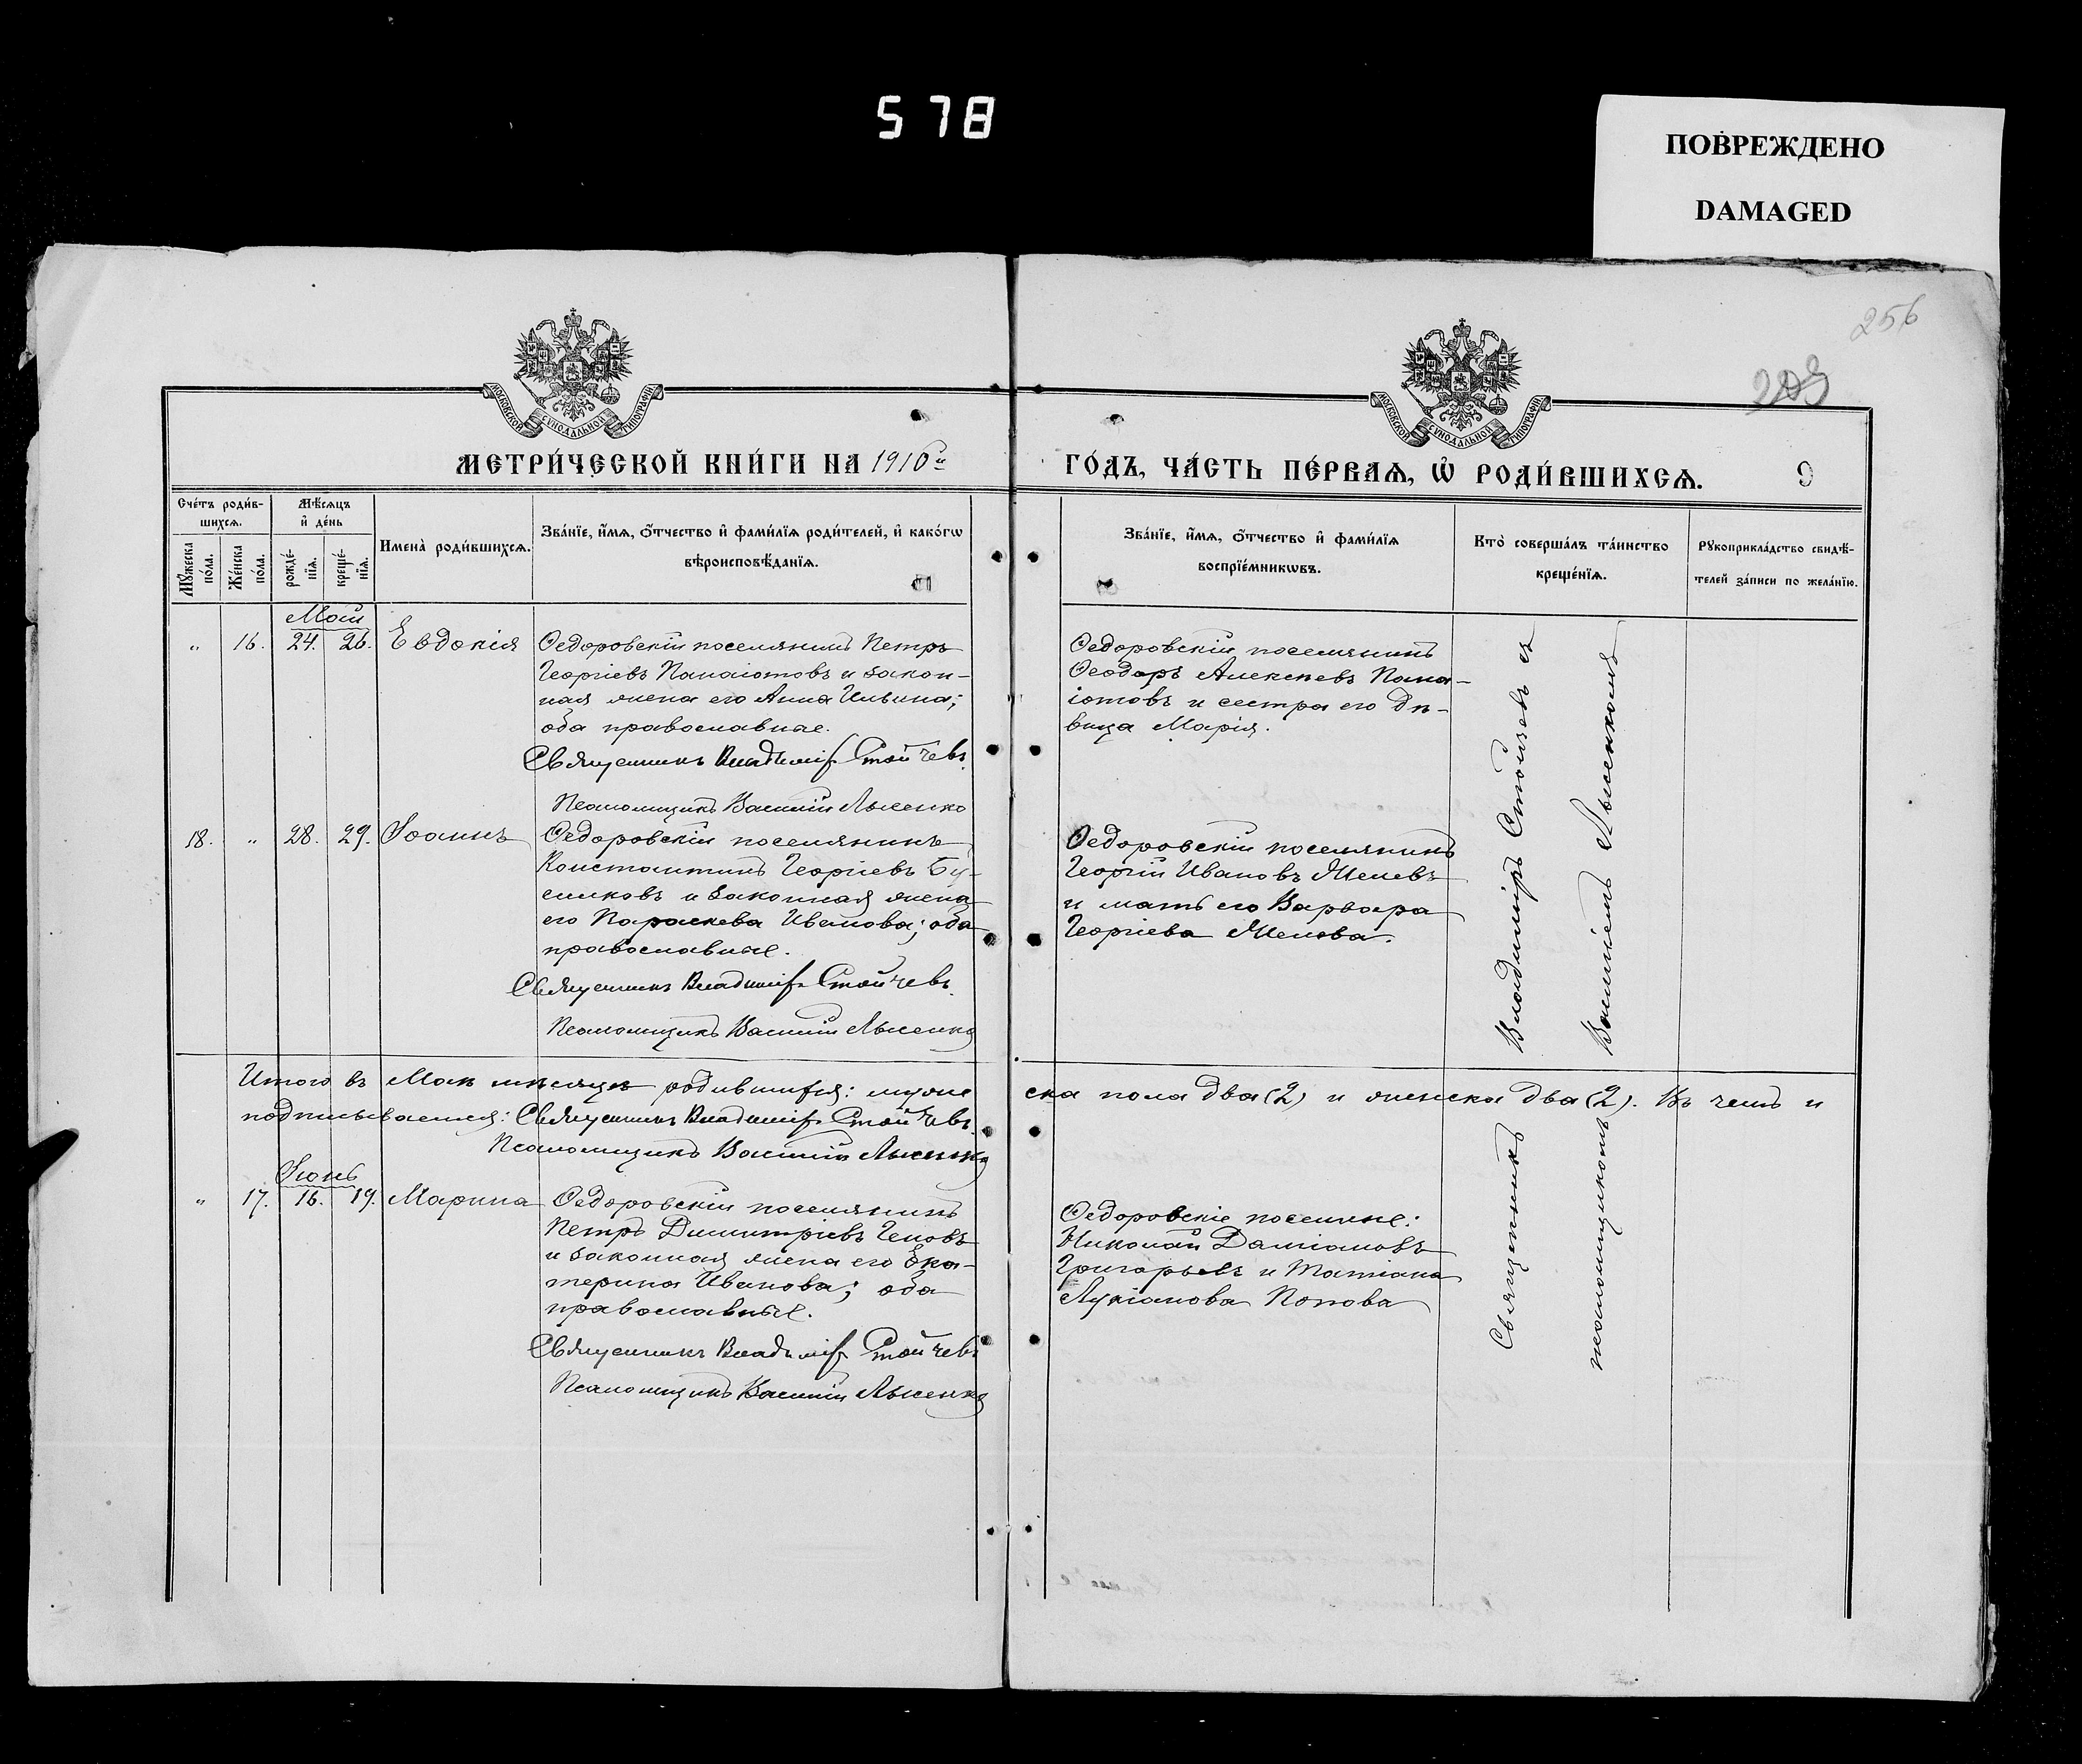 578
ПОВРЕЖДЕНО
DAMAGED
256
209
МОСКОВСКОЙ СѴНОДАЛЬНОЙ ТИПОГРАФІИ
МОСКОВСКОЙ СѴНОДАЛЬНОЙ ТИПОГРАФІИ
МЕТРИ́ЧЕСКОЙ КНИ́ГИ НА 1910й
ГО́ДЪ, ЧА́СТЬ ПЕ́РВАѦ, Ѽ РОДИ́ВШИХСѦ.
9
Сче́тъ роди́в-
шихсѧ.
Мꙋ́жеска по́ла.
Же́нска по́ла.
Мѣ́сѧцъ
и҆ де́нь
рожде́-нїѧ.
креще́-нїѧ.
Имена̀ роди́вшихсѧ.
Зва́нїе, и҆́мѧ, ѻ҆́тчество и҆ фами́лїѧ роди́телей, и҆ како́гѡ
вѣроисповѣ́данїѧ.
Зва́нїе, и҆́мѧ, ѻ҆́тчество и҆ фами́лїѧ
воспрїе́мникѡвъ.
Кто̀ соверша́лъ та́инство
креще́нїѧ.
Рꙋкоприкла́дство свидѣ́-
телей за́писи по жела́нїю.
Май
" 16. 24. 26. Евдокія
Ѳедоровскій поселянинъ Петръ
Георгіевъ Панаіотовъ и закон-
ная жена его Анна Ильина;
оба православные.
Священникъ Владиміръ Стойчевъ.
Псаломщикъ Василій Лысенко
Ѳедоровскій поселянинъ
Ѳеодоръ Алексѣевъ Пана-
іотовъ и сестра его дѣ-
вица Марія.
18. " 28. 29. Іоаннъ
Ѳедоровскій поселянинъ
Константинъ Георгіевъ Бу-
сликовъ и законная жена
его Параскева Иванова; оба
православные.
Священникъ Владиміръ Стойчевъ.
Псаломщикъ Василій Лысенко
Ѳедоровскій поселянинъ
Георгій Ивановъ Желевъ
и мать его Варвара
Георгіева Желева.
Итого въ Маѣ мѣсяцѣ родившихся: муже
ска пола два (2) и женска два (2). Въ чемъ и
подписываемся: Священникъ Владиміръ Стойчевъ.
Псаломщикъ Василій Лысенко
Іюнь
" 17. 16. 19. Марина
Ѳедоровскій поселянинъ
Петръ Димитріевъ Геновъ
и законная жена его Ека-
терина Иванова; оба
православные.
Священникъ Владиміръ Стойчевъ
Псаломщикъ Василій Лысенко
Ѳедоровскіе поселяне:
Николай Даміановъ
Григорьевъ и Татіана
Лукіанова Попова
Священникъ Владиміръ Стойчевъ съ
псаломщикомъ Василіемъ Лысенкомъ